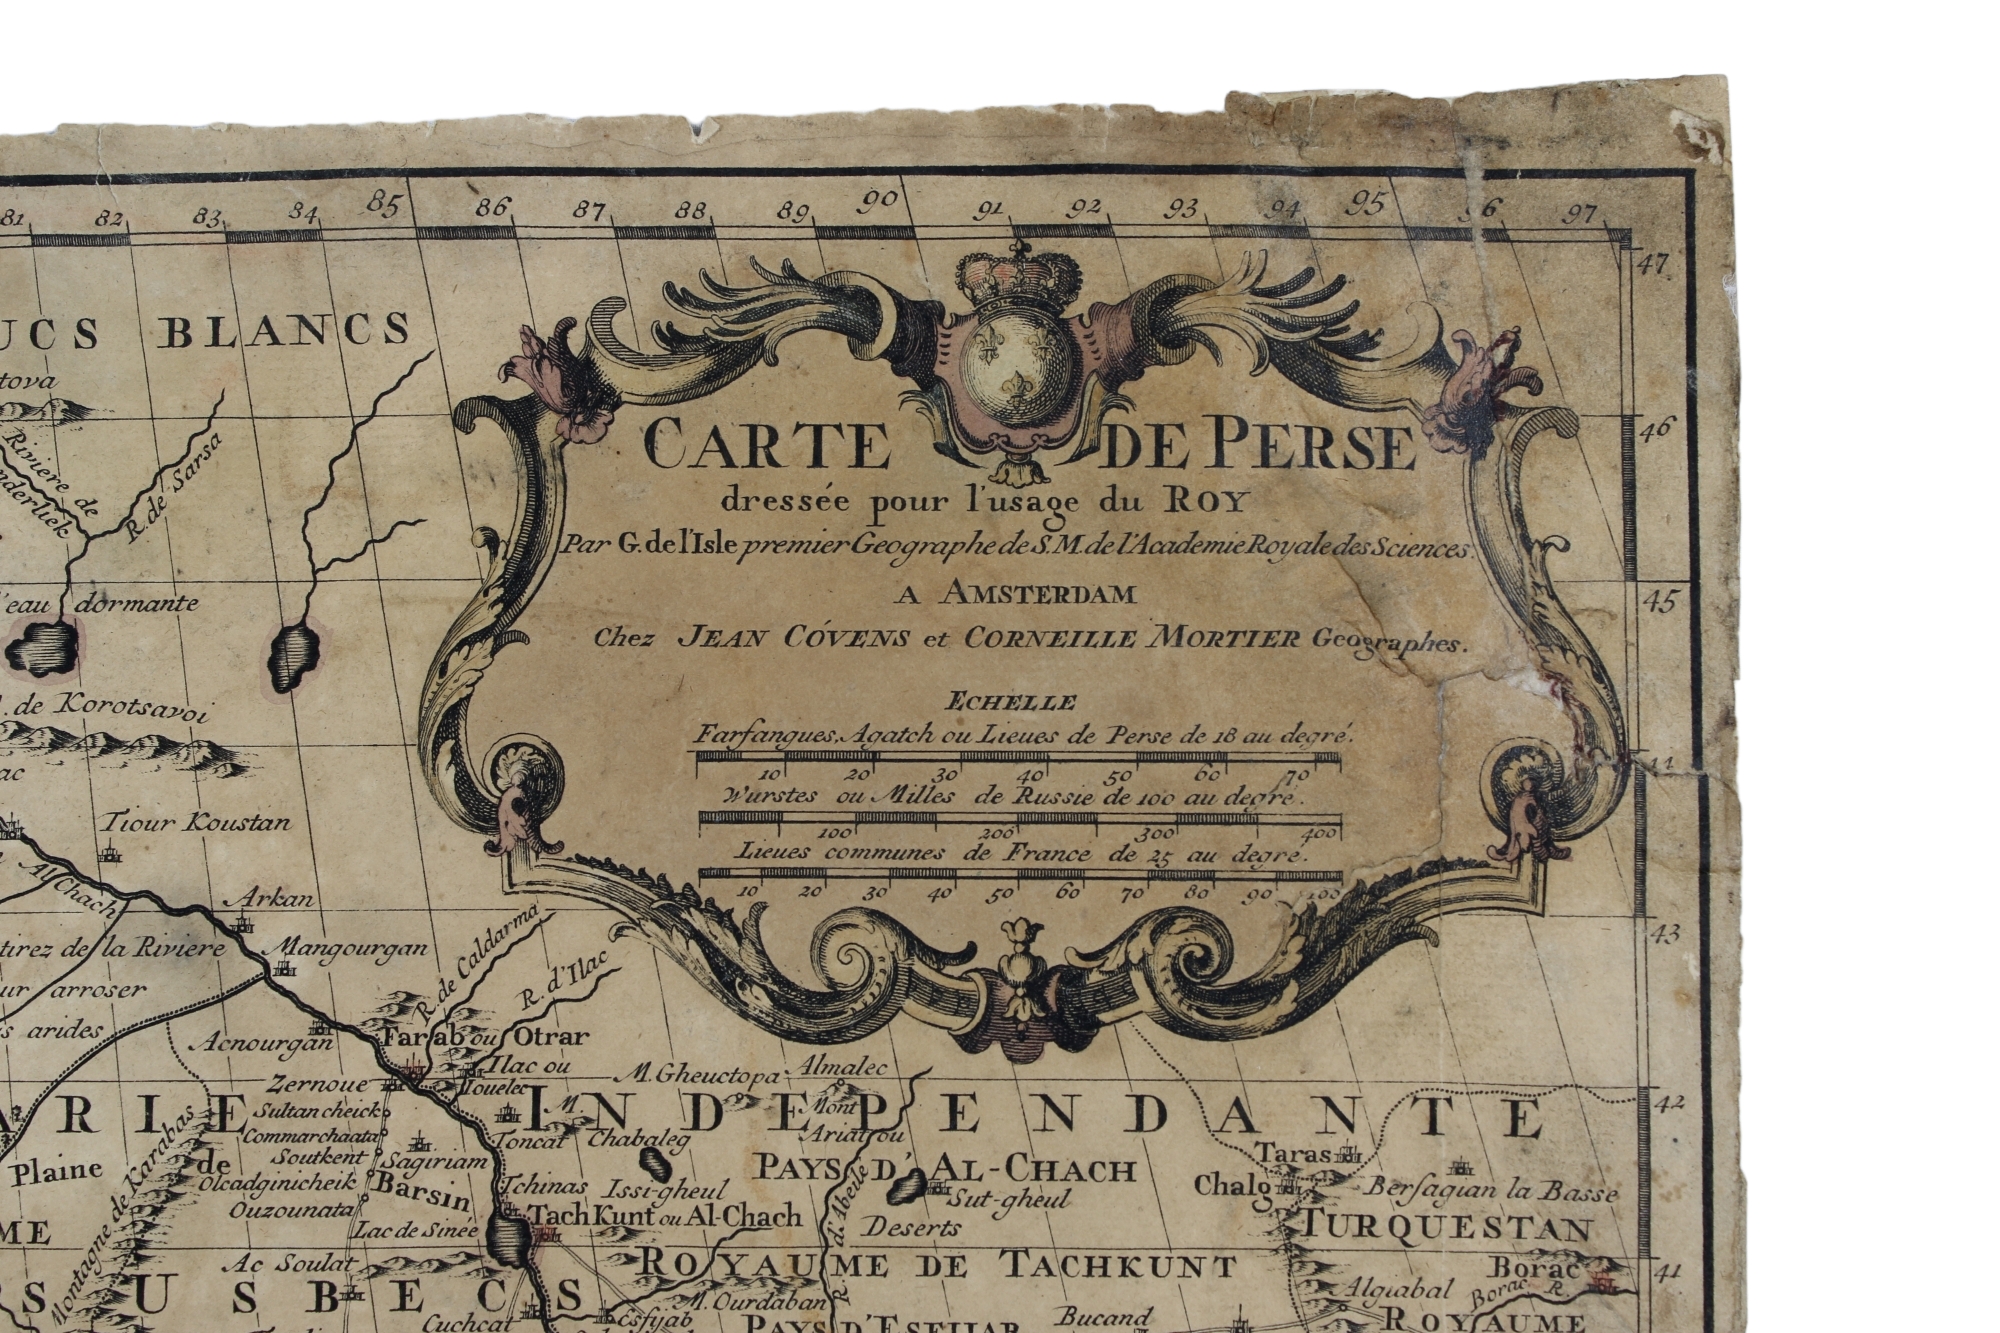 81 82 83 84 85 86 87 88 89 90 91 92 93 94 95 96 97
47
UCS BLANCS
tova
46
CARTE DE PERSE
dressée pour l'usage du ROY
Par G. de l'Isle premier Geographe de S.M. de l'Academie Royale des Sciences.
A AMSTERDAM
Chez JEAN CÓVENS et CORNEILLE MORTIER Geographes.
Riviere de
R. de Sarsa
45
l'eau dormante
de Korotsavoi
ECHELLE
Farsangues, Agatch ou Lieues de Perse de 18 au degré.
10 20 30 40 50 60 70
Wurstes ou Milles de Russie de 100 au degré.
100 200 300 400
Lieues communes de France de 25 au degré.
10 20 30 40 50 60 70 80 90 100
ac
Tiour Koustan
Al Chach
Arkan
43
tirez de la Riviere
Mangourgan
R. de Caldarma
R. d'Ilac
ur arroser
s arides
Acnourgan
Farab ou Otrar
Ilac ou
Jouelec
Zernouc
M. Gheuctopa
Almalec
42
ARIE INDEPENDANTE
Sultancheick
M.
Mont
Ariat ou
Commarchaata
Toncat
Chabaleg
Taras
Soutkent
Sagiriam
Plaine de
Montagne de Karabas
PAYS D'AL-CHACH
Olcadginicheik
Barsin
Tchinas
Issi-gheul
Sut-gheul
Chalg
Bersagian la Basse
Ouzounata
Lac de Sinée
TachKunt ou Al-Chach
R. d'Abeile
Deserts
TURQUESTAN
ME
Ac Soulat
ROYAUME DE TACHKUNT
Borac
41
S USBECS
M. Ourdaban
Algiabal
Borac R.
Cuchcat
Esfijab
Bucand
ROYAUME
PAYS D'ESFIJAB